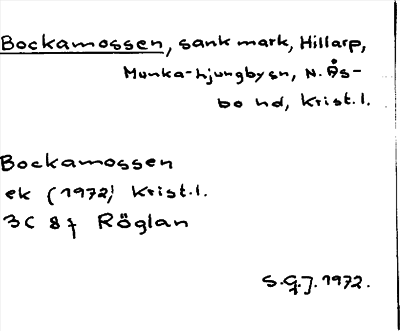 Bockamossen, sank mark, Hillarp,
Munka-Ljungby sn, N. Ås-
bo hd, Krist.l.
Bockamossen
ek (1972) Krist.l.
3C 8f Röglan
S.G.J. 1972.